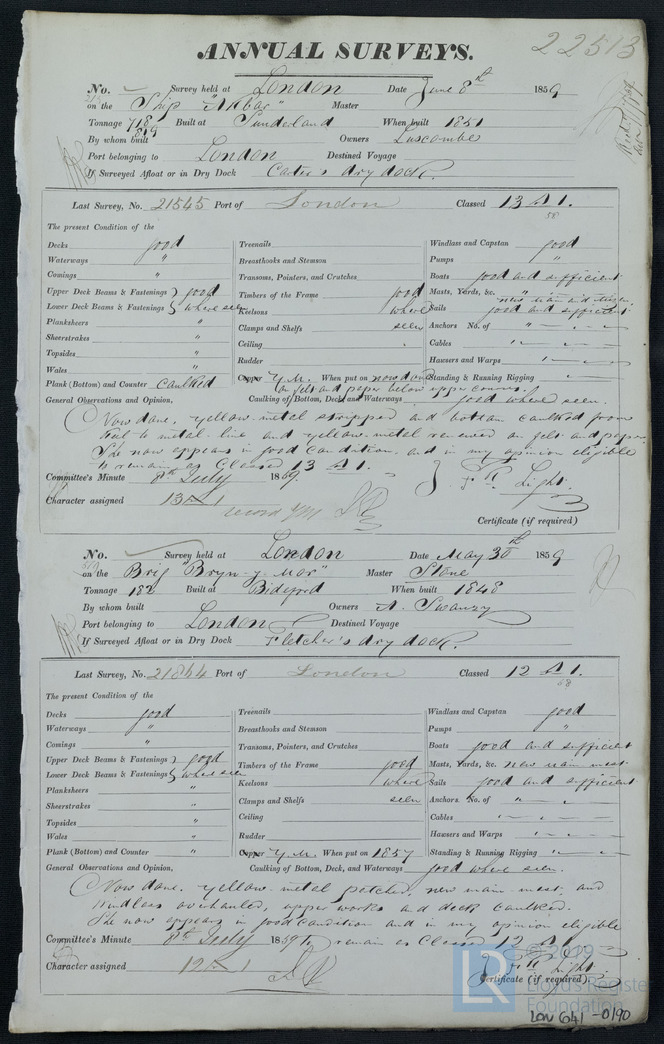 ANNUAL SURVEYS.
22513
No. Survey held at London Date June 8th 1859
on the Ship "Akbar" Master
Tonnage 718 Built at Sunderland When built 1851
819
By whom built Owners Luscombe
Port belonging to London Destined Voyage
If Surveyed Afloat or in Dry Dock Carter's dry dock.
Last Survey, No. 21545 Port of London Classed 13 A 1.
58
The present Condition of the
Decks good
Waterways "
Comings "
Upper Deck Beams & Fastenings } good
Lower Deck Beams & Fastenings } where seen
Planksheers "
Sheerstrakes "
Topsides "
Wales "
Plank (Bottom) and Counter Caulked
Treenails
Breasthooks and Stemson
Transoms, Pointers, and Crutches
Timbers of the Frame good
Keelsons where
Clamps and Shelfs seen
Ceiling
Rudder
Copper Y.M. When put on now done
on felt and paper below
Windlass and Capstan good
Pumps "
Boats good and sufficient
Masts, Yards, &c. "
new main and
Sails good and sufficient
Anchors No. of "
Cables "
Hawsers and Warps "
Standing & Running Rigging "
General Observations and Opinion, Caulking of Bottom, Deck, and Waterways good where seen.
Now done. yellow metal stripped and bottom caulked from
keel to metal line and yellow metal renewed on felt and paper.
She now appears in good condition and in my opinion eligible
to remain as Classed 13 A 1.
Committee's Minute 8th July 1859. J. Light
Character assigned 13 A 1
record YM
Certificate (if required)
No. Survey held at London Date May 30th 1859
on the Brig "Bryn-y-Mor" Master Stone
Tonnage 182 Built at Bideford When built 1848
By whom built Owners A. Swanzy
Port belonging to London Destined Voyage
If Surveyed Afloat or in Dry Dock Fletcher's dry dock.
Last Survey, No. 21844 Port of London Classed 12 A 1.
58
The present Condition of the
Decks good
Waterways "
Comings "
Upper Deck Beams & Fastenings } good
Lower Deck Beams & Fastenings } where seen
Planksheers "
Sheerstrakes "
Topsides "
Wales "
Plank (Bottom) and Counter "
Treenails
Breasthooks and Stemson
Transoms, Pointers, and Crutches
Timbers of the Frame good
Keelsons where
Clamps and Shelfs seen
Ceiling
Rudder
Copper Y.M. When put on 1857
Windlass and Capstan good
Pumps "
Boats good and sufficient
Masts, Yards, &c. new main mast
Sails good and sufficient
Anchors No. of "
Cables "
Hawsers and Warps "
Standing & Running Rigging "
General Observations and Opinion, Caulking of Bottom, Deck, and Waterways good where seen.
Now done. yellow metal patched, new main mast, and
windlass overhauled, upper works and deck caulked.
She now appears in good condition and in my opinion eligible
Committee's Minute 8th July 1859 to remain as Classed 12 A 1.
Character assigned 12 A 1 J. Light
Certificate (if required)
© 2019
LR
Lloyd's Register
Foundation
LON 641-0190